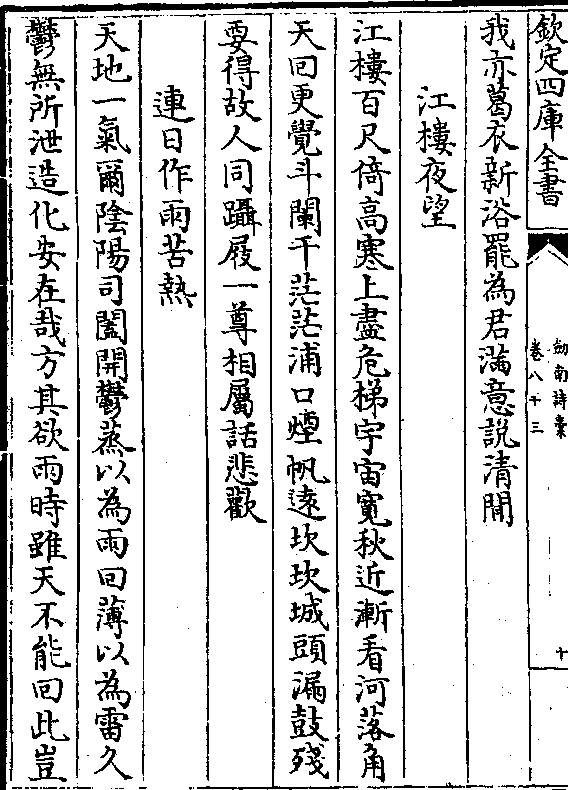 欽定四庫全書
劒南詩稾
卷八十三
十
我亦葛衣新浴罷為君滿意說清閒
江樓夜望
江樓百尺倚高寒上盡危梯宇宙寛秋近漸看河落角
天回更覺斗闌干茫茫浦口煙帆逺坎坎城頭漏鼓殘
要得故人同躡屐一尊相屬話悲歡
連日作雨苦熱
天地一氣爾陰陽司闔開鬱蒸以為雨回薄以為雷久
鬱無所泄造化安在哉方其欲雨時雖天不能回此豈